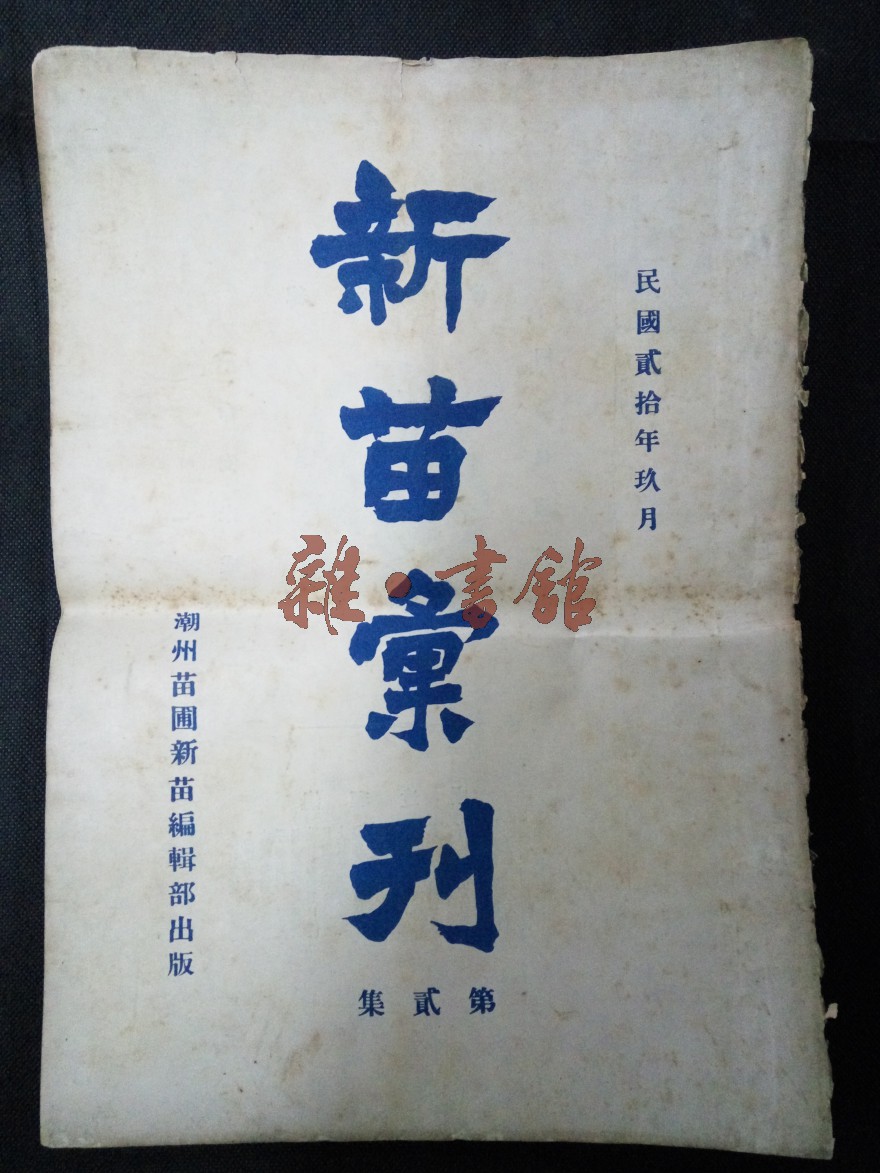 民國貳拾年玖月
新苗彙刊
第貳集
潮州苗圃新苗編輯部出版
雜·書館